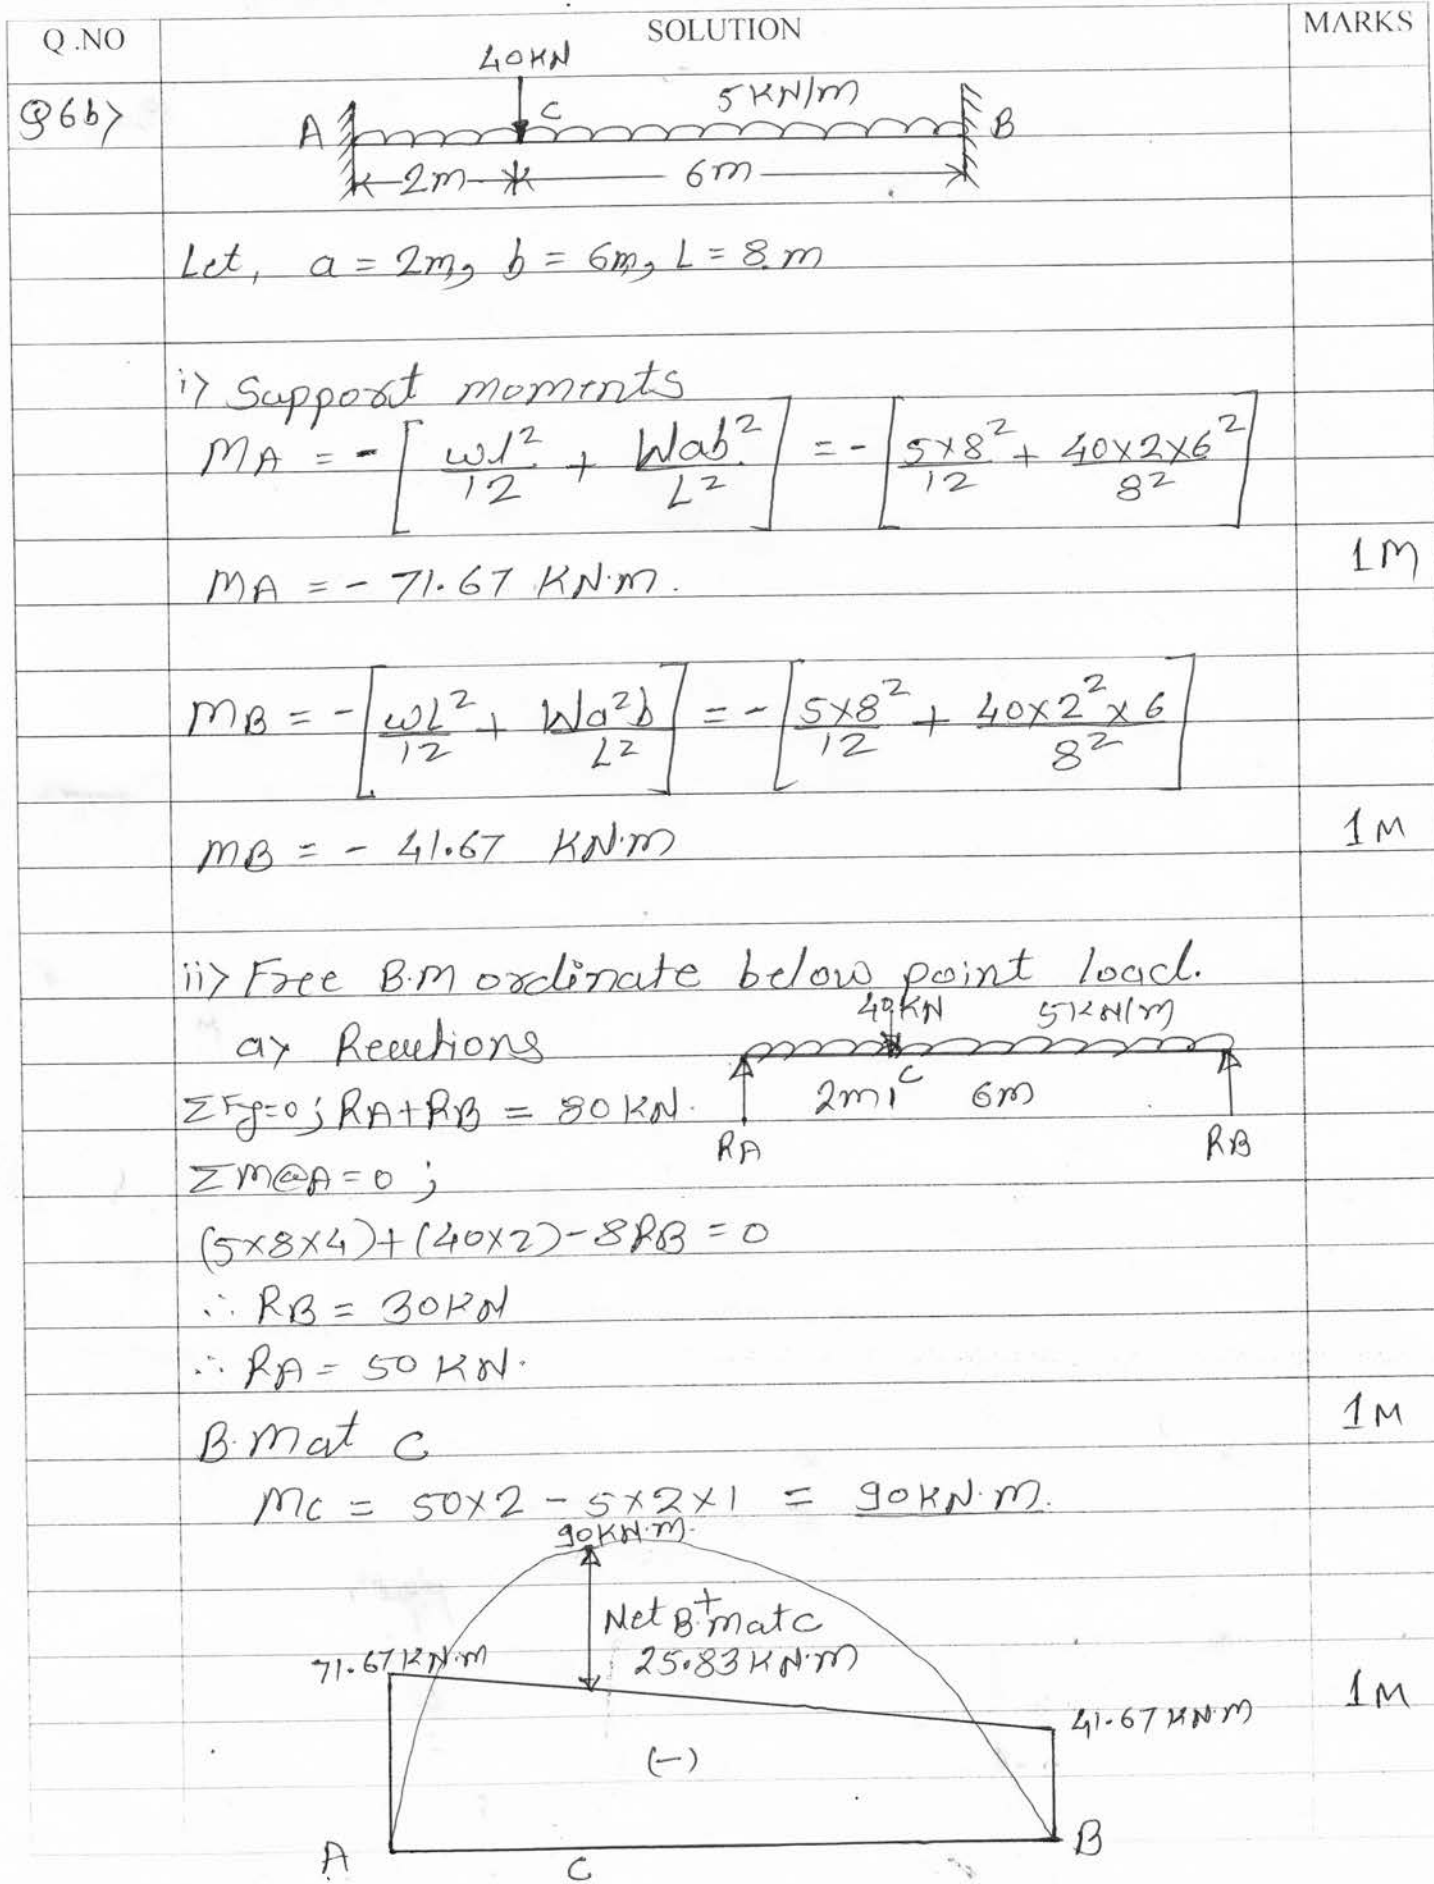 Q.NO SOLUTION MARKS
40KN
Q6b> A C 5KN/m B
2m 6m
Let, a = 2m, b = 6m, L = 8.m
i> Support moments
MA = -[wl²/12 + Wab²/L²] = -[5×8²/12 + 40×2×6²/8²]
MA = - 71.67 KN.m. 1M
MB = -[wL²/12 + Wa²b/L²] = -[5×8²/12 + 40×2²×6/8²]
MB = - 41.67 KN.m 1M
ii> Free B.M ordinate below point load.
40KN 5KN/m
a> Reactions
C
2m 6m
ΣFy=0; RA+RB = 80KN.
RA RB
ΣM@A=0;
(5×8×4)+(40×2)-8RB=0
∴ RB = 30KN
∴ RA = 50KN.
B.M at C 1M
MC = 50×2 - 5×2×1 = 90KN.m.
90KN.m.
+
Net B.M at C
71.67KN.m 25.83KN.m
1M
41.67KN.m
(-)
A C B